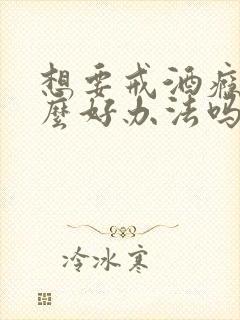 想要戒酒瘾
麼好办法吗
冷冰寒